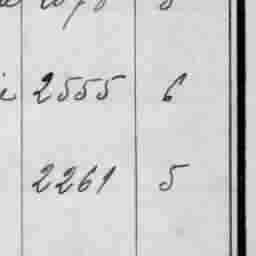 2555 6
2261 5